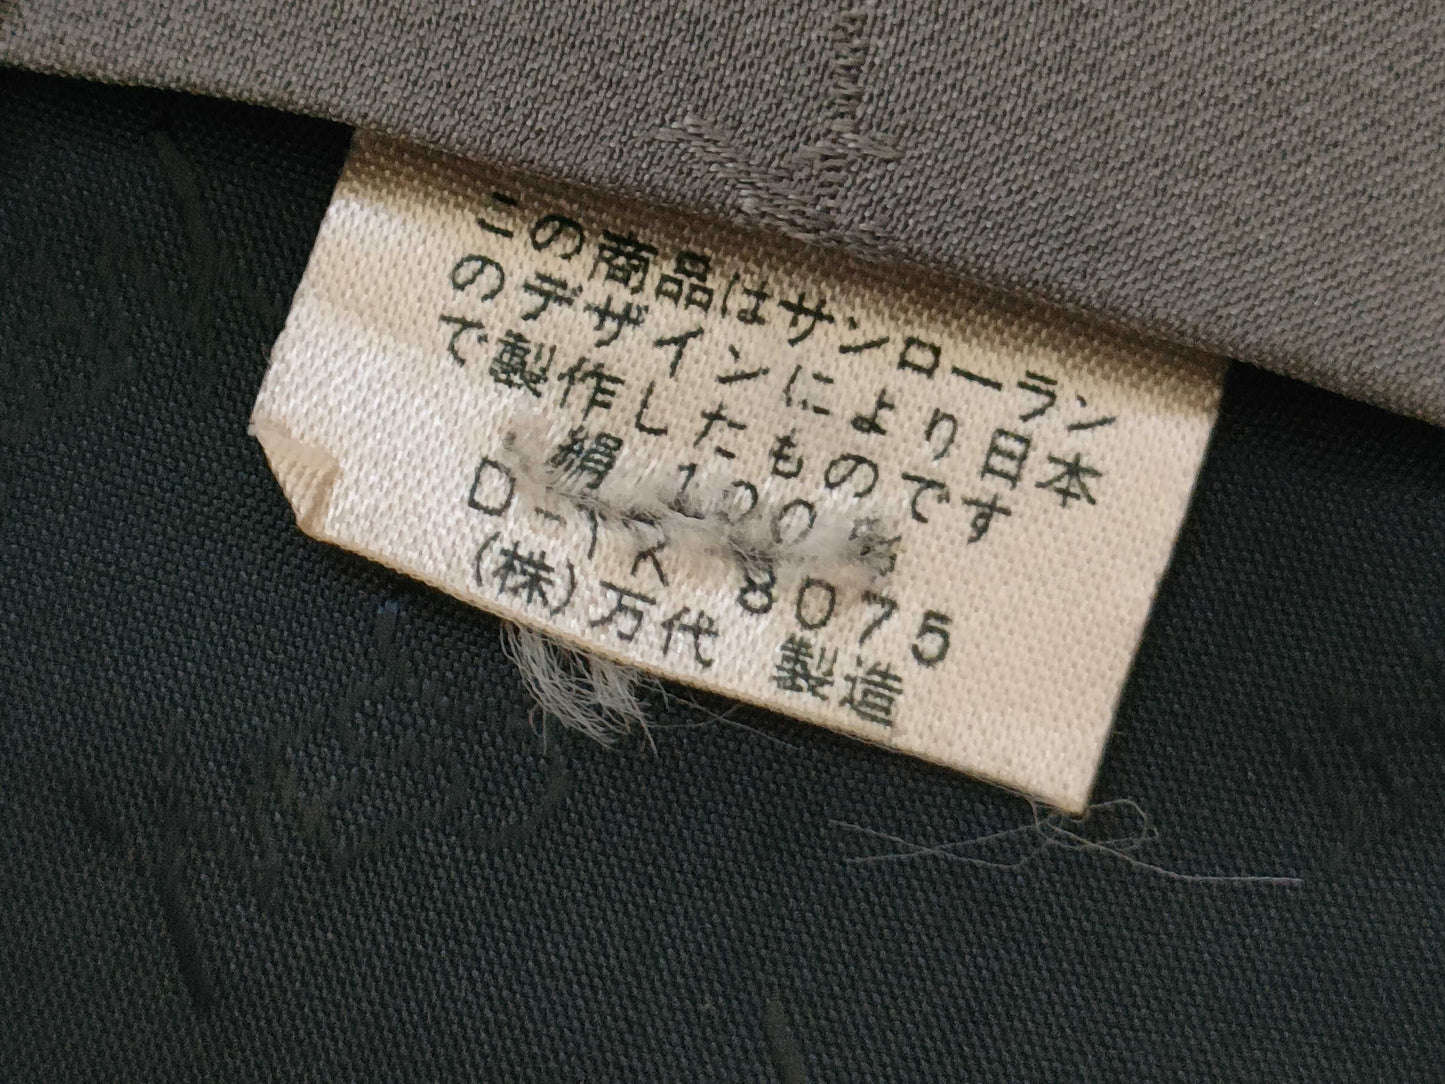 この商品はサンローラン
のデザインにより日本
で製作したものです
絹 100%
D-1X 8075
(株)万代 製造